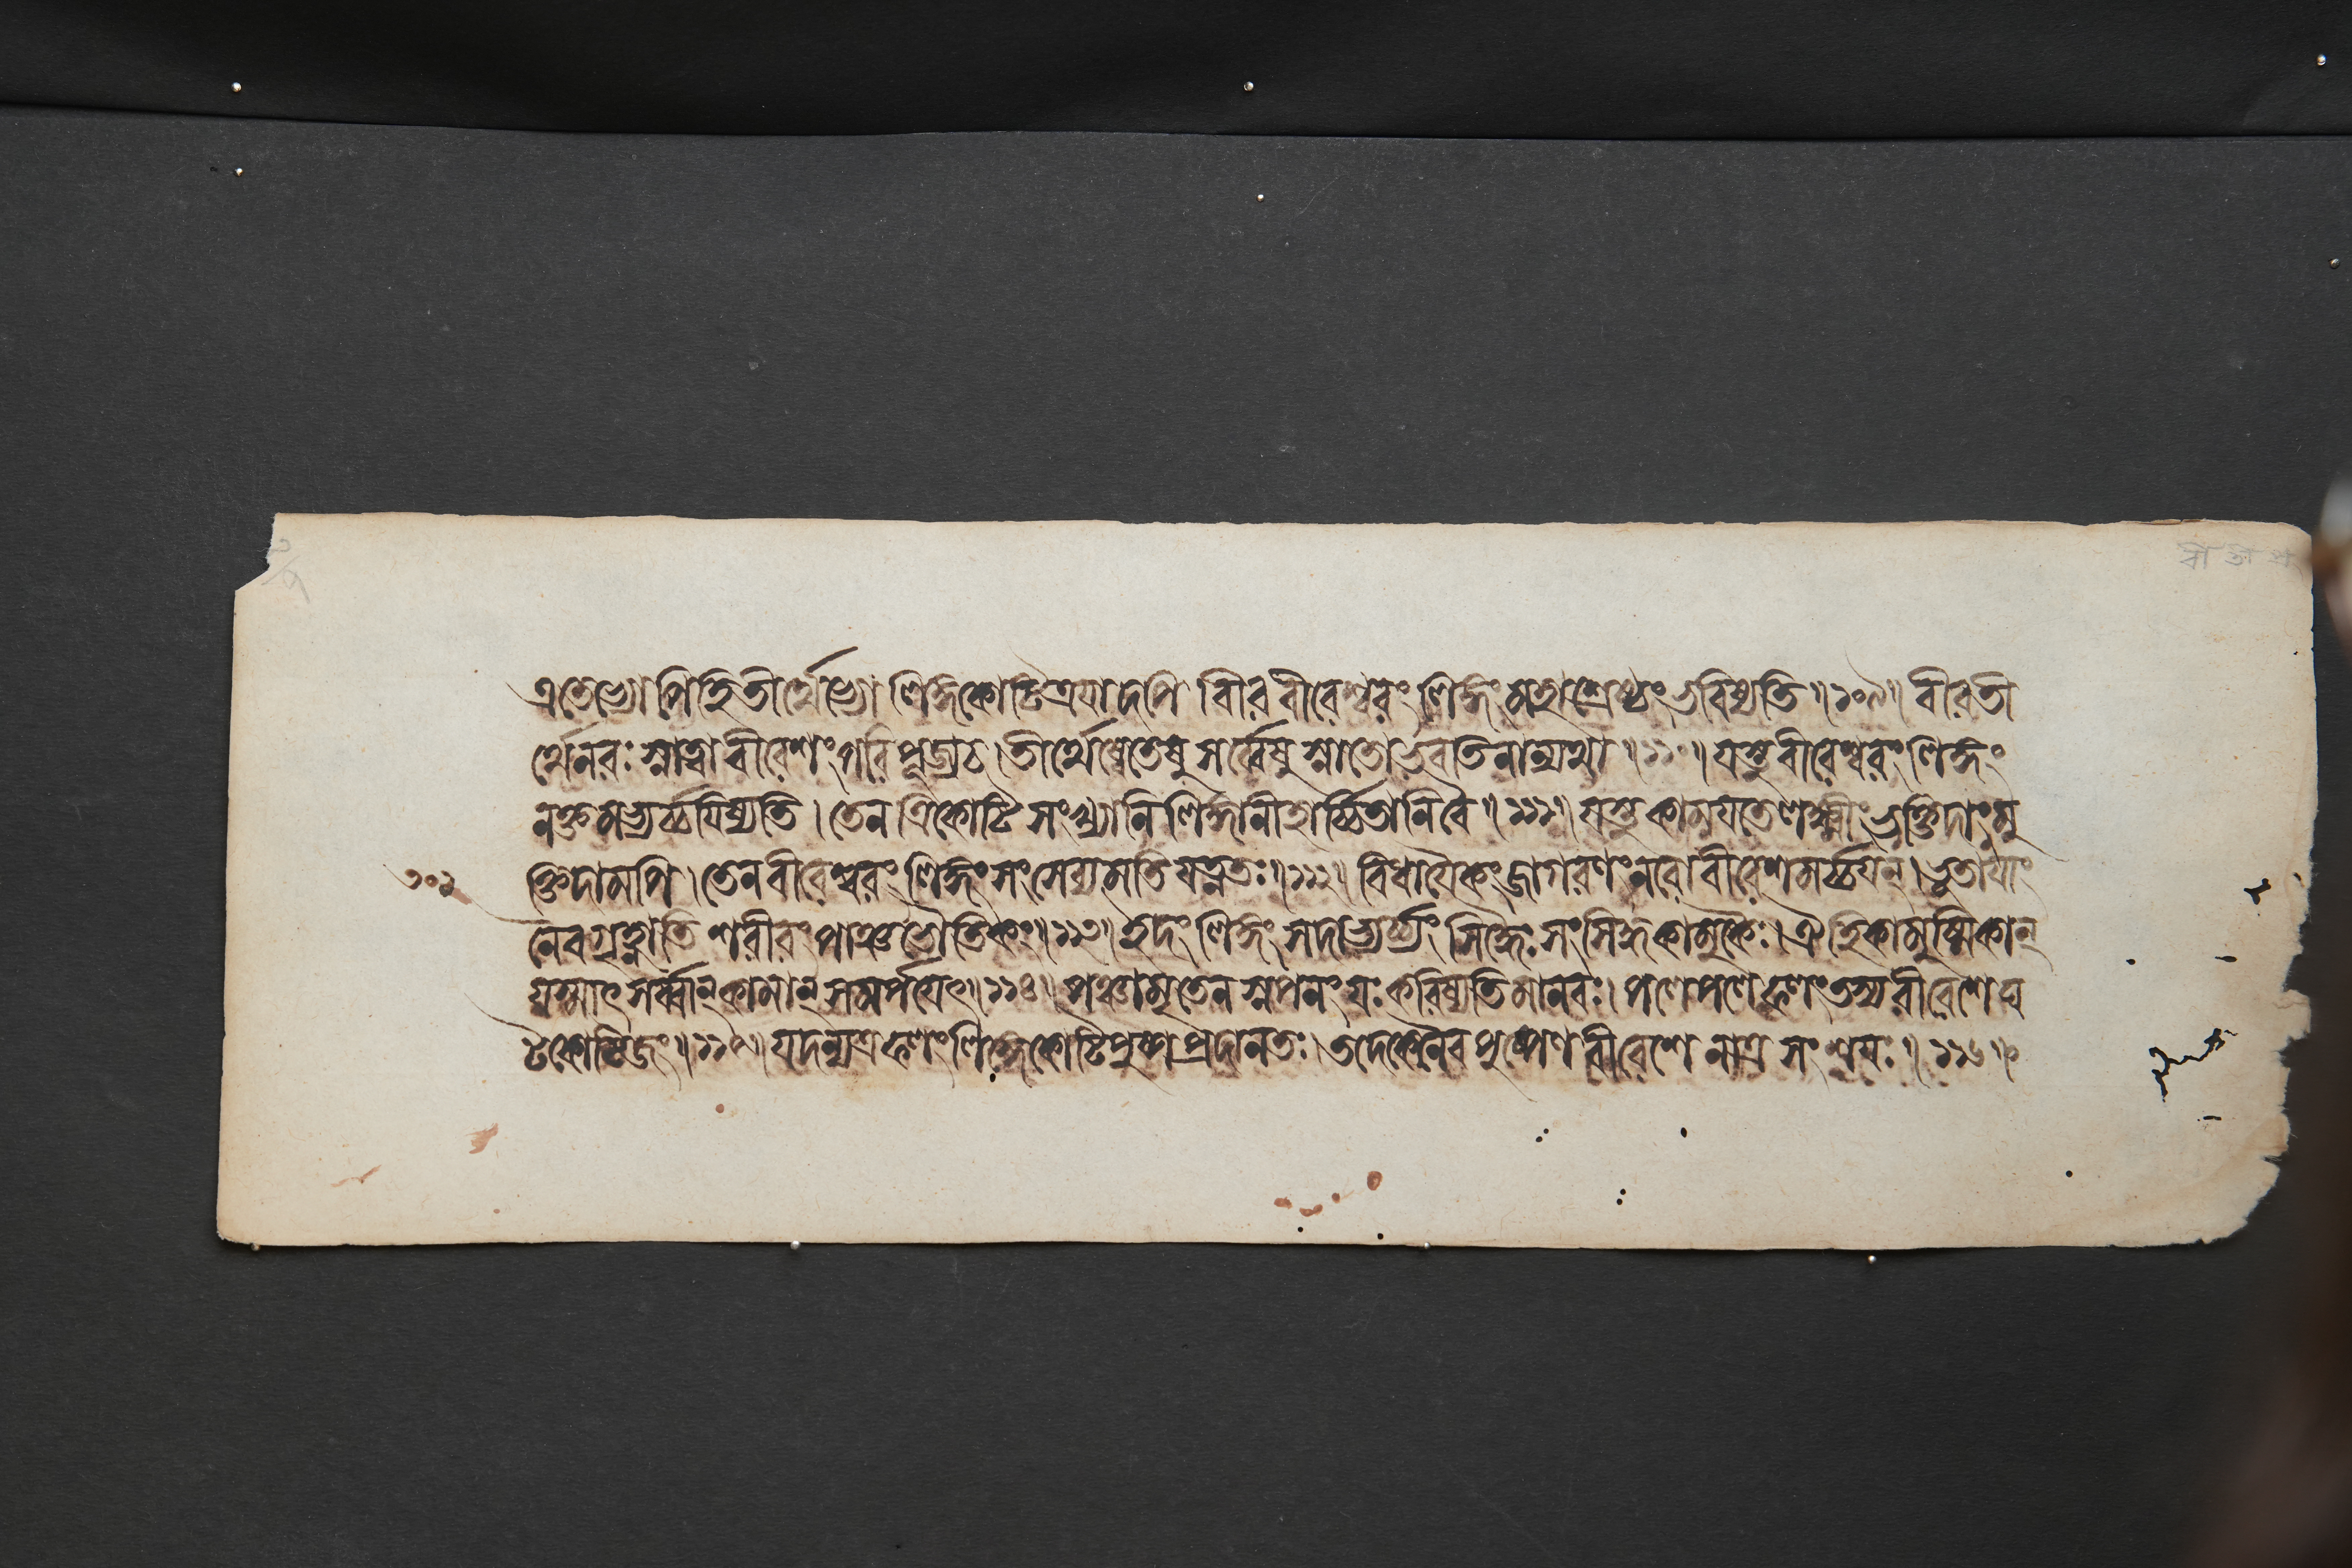 এতেভ্যোপি হি তীর্থেভ্যো লিঙ্গকোটিত্রয়াদপি বীরবীরেশ্বরং লিঙ্গং মহাশ্রেষ্ঠং ভবিষ্যতি॥১০৯॥ বীরতী
র্থে নরঃ স্নাত্বা বীরেশং পরিপূজ্য চ। তীর্থেষ্বেতেষু সর্ব্বেষু স্নাতো ভবতি নান্যথা॥১১০॥ যস্তু বীরেশ্বরং লিঙ্গং
নক্তমভ্যর্চ্চয়িষ্যতি। তেন ত্রিকোটি সংখ্যানি লিঙ্গানীহার্চ্চিতানি বৈ॥১১১॥ যস্তু কাময়তে লক্ষ্মীং ভুক্তিদাং মু
ক্তিদামপি। তেন বীরেশ্বরং লিঙ্গং সংসেব্যমতি যত্নতঃ॥১১২॥ বিধায়ৈকং জাগরণং নরো বীরেশমর্চ্চয়ন্। ভূতায়াং
৩০১
নৈব গৃহ্ণাতি শরীরং পাঞ্চভৌতিকং॥১১৩॥ ইদং লিঙ্গং সদাভ্যর্চ্চ্যং সিদ্ধৈঃ সংসিদ্ধকামুকৈঃ। ঐহিকামুষ্মিকান্
যস্মাৎ সর্ব্বান্ কামান্ সমর্পয়েৎ॥১১৪॥ পঞ্চামৃতেন স্নপনং যঃ করিষ্যতি মানবঃ। পলে পলে ফলং তস্য বীরেশে ঘ
টকোটিজং॥১১৫॥ যদন্যত্র ফলং লিঙ্গে কোটিপুষ্পপ্রদানতঃ। তদেকেনৈব পুষ্পেণ বীরেশে নাত্র সংশয়ঃ॥১১৬॥